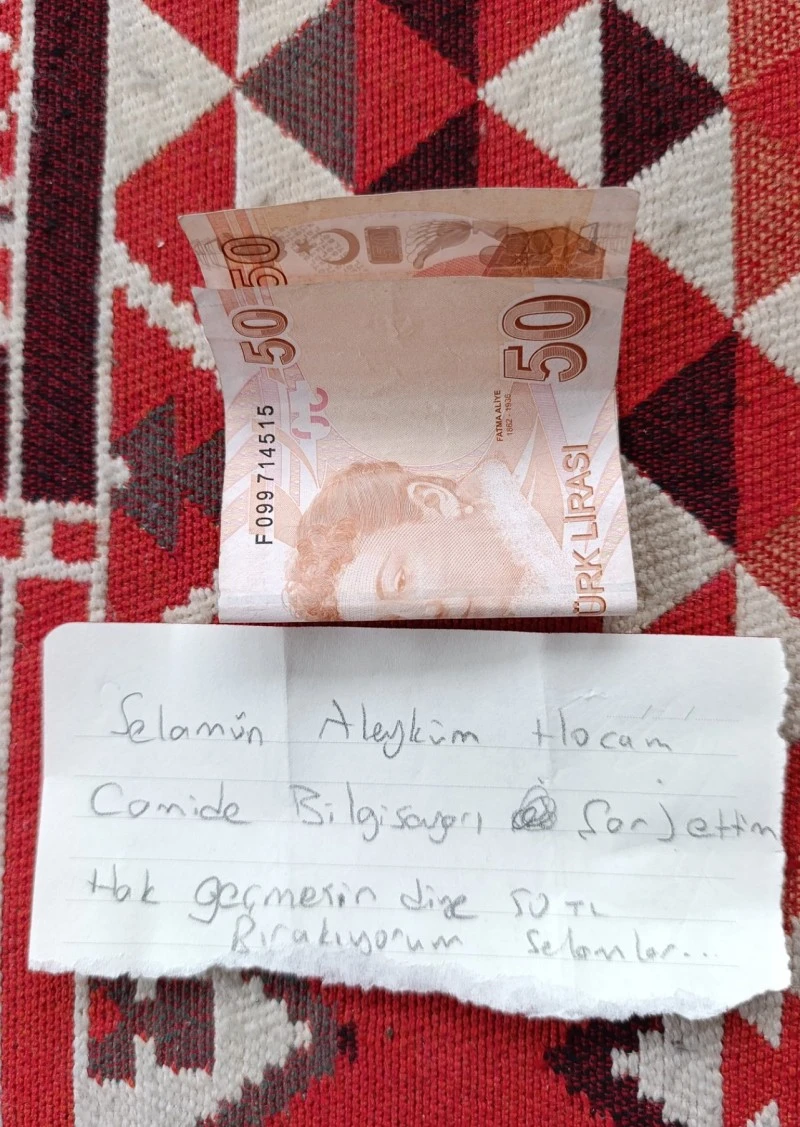 50
50
50
F 099 714515
FATMA ALİYE
1862 - 1936
ÜRK LİRASI
Selamün Aleyküm Hocam
Camide Bilgisayarı Şarj ettim
Hak geçmesin diye 50 TL
Bırakıyorum Selamlar...